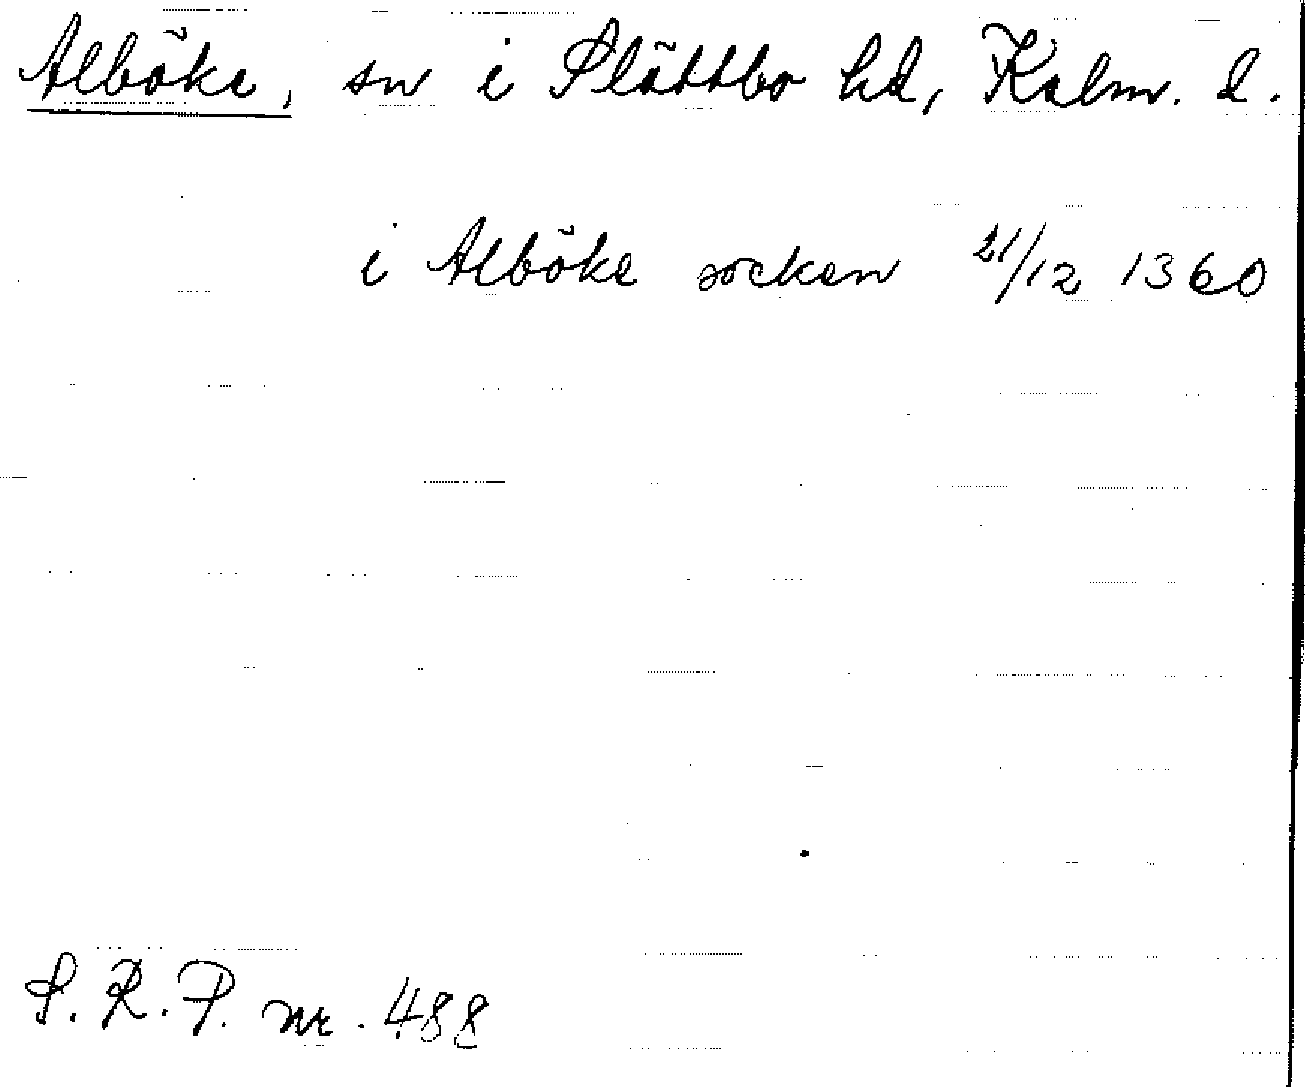 Alböke, sn i Slättbo hd, Kalm. l.
i Alböke socken 21/12 1360
S. R. P. nr. 488